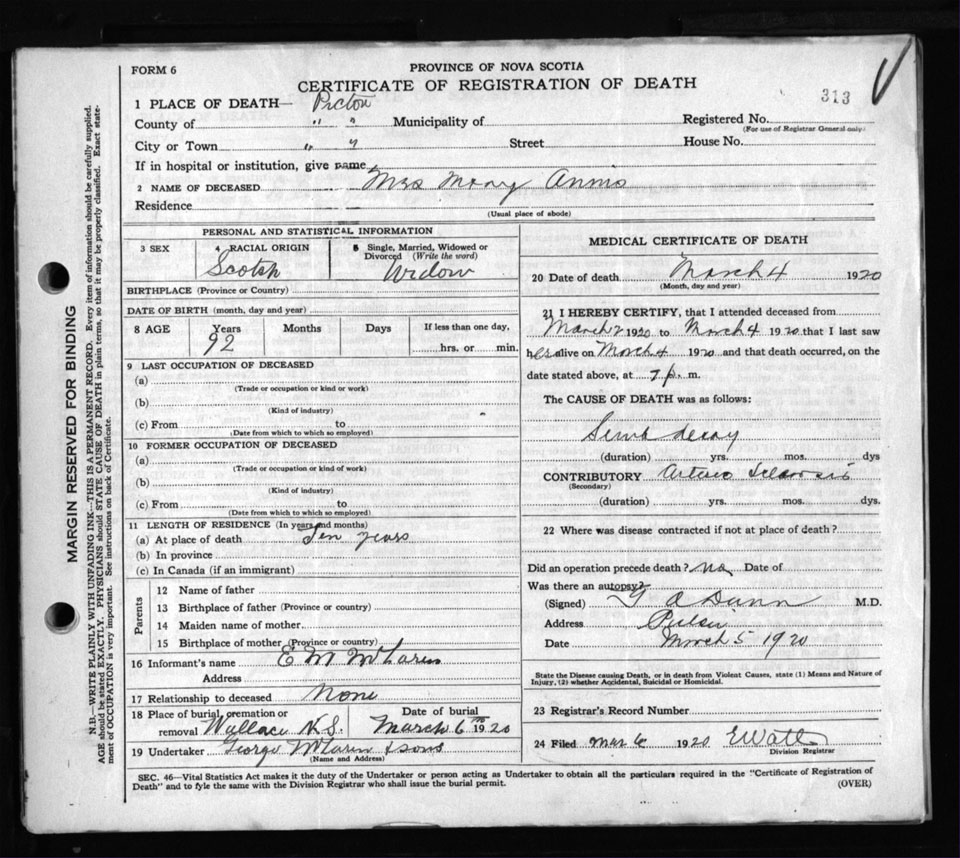 FORM 6
PROVINCE OF NOVA SCOTIA
CERTIFICATE OF REGISTRATION OF DEATH
313
1 PLACE OF DEATH— Pictou
County of " " Municipality of Registered No.
(For use of Registrar General only)
City or Town " " Street House No.
If in hospital or institution, give name
2 NAME OF DECEASED Mrs Mary Annis
Residence
(Usual place of abode)
PERSONAL AND STATISTICAL INFORMATION
3 SEX
4 RACIAL ORIGIN
5 Single, Married, Widowed or Divorced (Write the word)
Scotch
Widow
BIRTHPLACE (Province or Country)
DATE OF BIRTH (month, day and year)
8 AGE Years Months Days If less than one day,
92 hrs. or min.
9 LAST OCCUPATION OF DECEASED
(a)
(Trade or occupation or kind or work)
(b)
(Kind of industry)
(c) From to
(Date from which to which so employed)
10 FORMER OCCUPATION OF DECEASED
(a)
(Trade or occupation or kind of work)
(b)
(Kind of industry)
(c) From to
(Date from which to which so employed)
11 LENGTH OF RESIDENCE (In years and months)
(a) At place of death Ten years
(b) In province
(c) In Canada (if an immigrant)
Parents
12 Name of father
13 Birthplace of father (Province or country)
14 Maiden name of mother
15 Birthplace of mother (Province or country)
16 Informant's name E M McLaren
Address
17 Relationship to deceased None
18 Place of burial, cremation or Date of burial
removal Wallace N.S. March 6th 1920
19 Undertaker George McLaren & sons
(Name and Address)
MEDICAL CERTIFICATE OF DEATH
20 Date of death March 4 1920
(Month, day and year)
21 I HEREBY CERTIFY, that I attended deceased from
March 2 1920 to March 4 1920 that I last saw
her alive on March 4 1920 and that death occurred, on the
date stated above, at 7 p. m.
The CAUSE OF DEATH was as follows:
decay
(duration) yrs. mos. dys
CONTRIBUTORY Arterio Sclerosis
(Secondary)
(duration) yrs. mos. dys.
22 Where was disease contracted if not at place of death?
Did an operation precede death? no Date of
Was there an autopsy?
(Signed) A Dunn M.D.
Address
Date March 5 1920
State the Disease causing Death, or in death from Violent Causes, state (1) Means and Nature of
Injury, (2) whether Accidental, Suicidal or Homicidal.
23 Registrar's Record Number
24 Filed Mar 6 1920 E Watt
Division Registrar
SEC. 46—Vital Statistics Act makes it the duty of the Undertaker or person acting as Undertaker to obtain all the particulars required in the "Certificate of Registration of
Death" and to fyle the same with the Division Registrar who shall issue the burial permit.
(OVER)
MARGIN RESERVED FOR BINDING
N.B.—WRITE PLAINLY WITH UNFADING INK—THIS IS A PERMANENT RECORD. Every item of information should be carefully supplied.
AGE should be stated EXACTLY. PHYSICIANS should STATE CAUSE OF DEATH in plain terms, so that it may be properly classified. Exact state-
ment of OCCUPATION is very important. See instructions on back of Certificate.